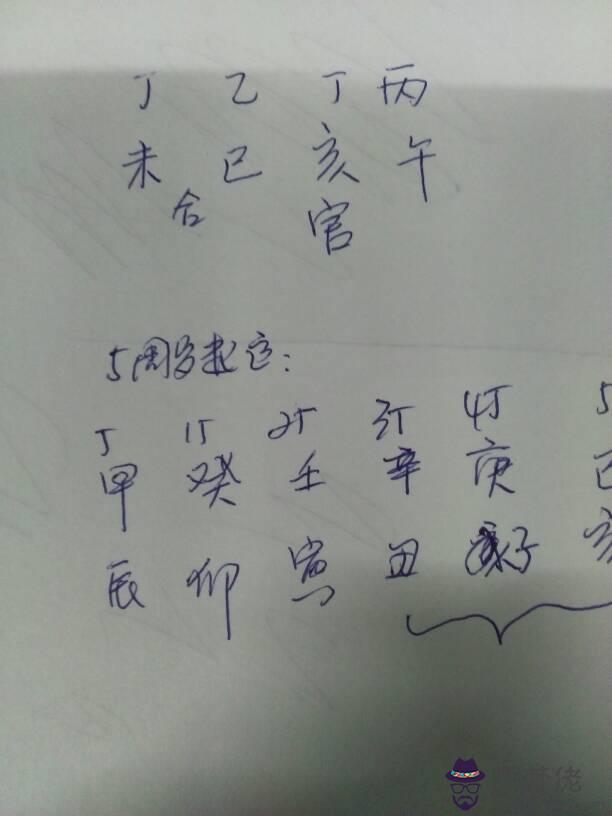 丁 乙 丁 丙
未 巳 亥 午
合 官
5周岁起运:
5 15 25 35 45 5
甲 癸 壬 辛 庚 己
辰 卯 寅 丑 子 亥
佬